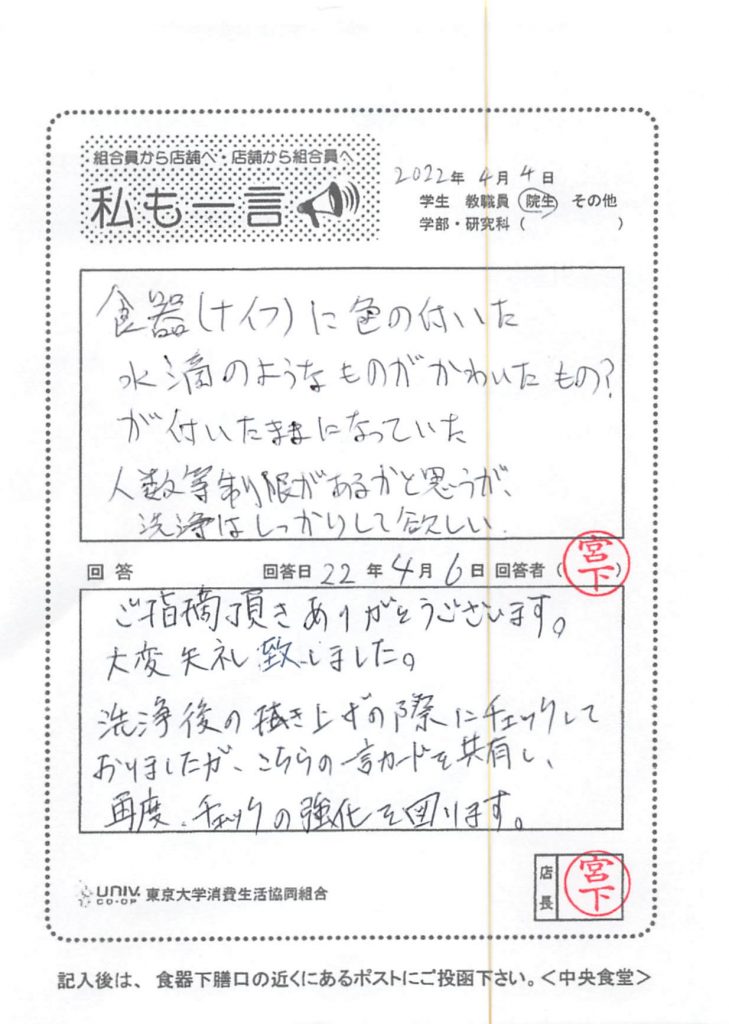 組合員から店舗へ・店舗から組合員へ
私も一言
2022年 4月 4日
学生 教職員 院生 その他
学部・研究科 ( )
食器(ナイフ)に色の付いた
水滴のようなものがかわいたもの?
が付いたままになっていた
人数等制限があるかと思うが、
洗浄はしっかりして欲しい.
回答 回答日 22年 4月 6日 回答者 (宮下)
ご指摘頂きありがとうございます。
大変失礼致しました。
洗浄後の拭き上げの際にチェックして
おりましたが、こちらの一言カードを共有し、
再度、チェックの強化を図ります。
UNIV. CO-OP 東京大学消費生活協同組合
店長 宮下
記入後は、食器下膳口の近くにあるポストにご投函下さい。<中央食堂>